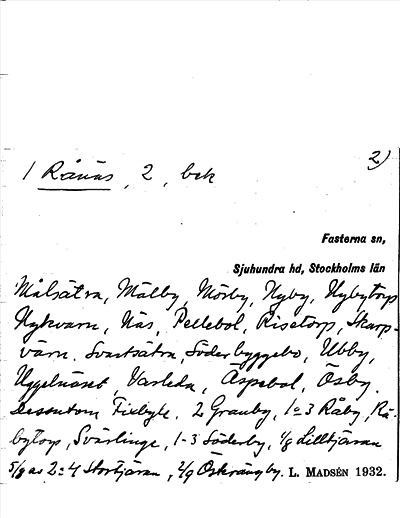 2)
1 Rånäs, 2, bek
Fasterna sn,
Sjuhundra hd, Stockholms län
Målsätra, Mälby, Mörby, Nyby, Nybytorp
Nykvarn, Näs, Pellebol, Risatorp, Skarp-
värn. Svartsätra, Söderbyggebo, Ubby,
Uggelnäset, Varleda, Aspebol, Ösby.
Dessutom Fixbyle. 2 Granby, 1-3 Råby, Rå-
bytorp, Svärlinge, 1-3 Söderby, 1/8 Lilltjäran
5/8 as 2:4 Stortjäran, 2/9 Östvängby. L. MADSÉN 1932.